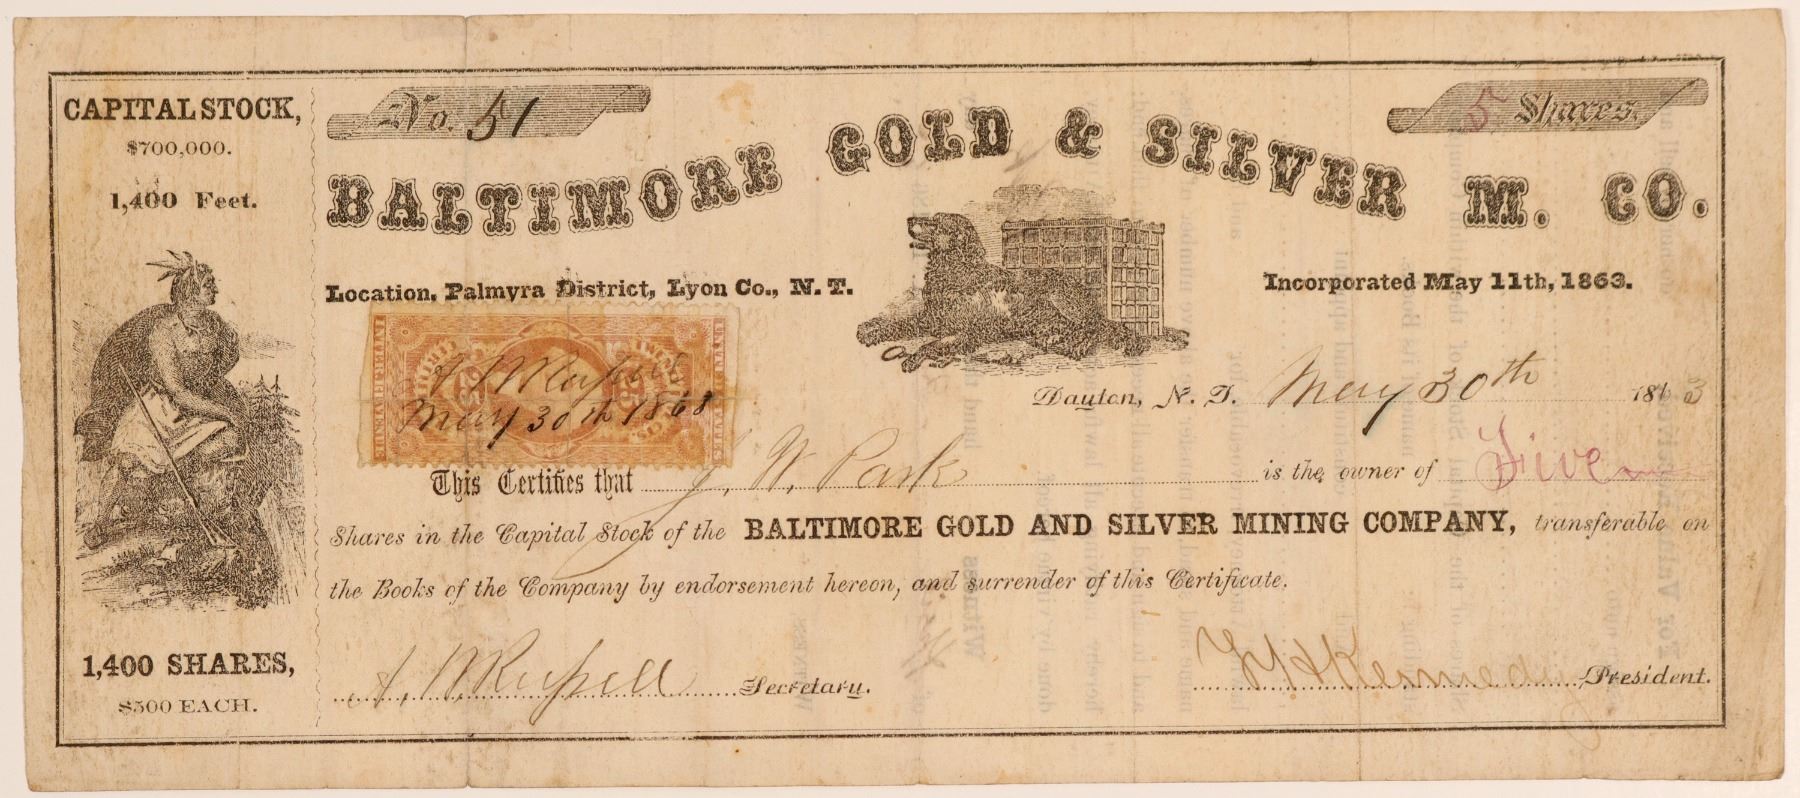 CAPITAL STOCK,
$700,000.
1,400 Feet.
1,400 SHARES,
$500 EACH.
No. 51
5 Shares.
BALTIMORE GOLD & SILVER M. CO.
Location, Palmyra District, Lyon Co., N. T.
Incorporated May 11th, 1863.
Dayton, N. T. May 30th 1863
25
A M Russell
May 30th 1863
This Certifies that J. W. Park is the owner of Five
Shares in the Capital Stock of the BALTIMORE GOLD AND SILVER MINING COMPANY, transferable on
the Books of the Company by endorsement hereon, and surrender of this Certificate.
A. M Russell Secretary.
Kennedy President.